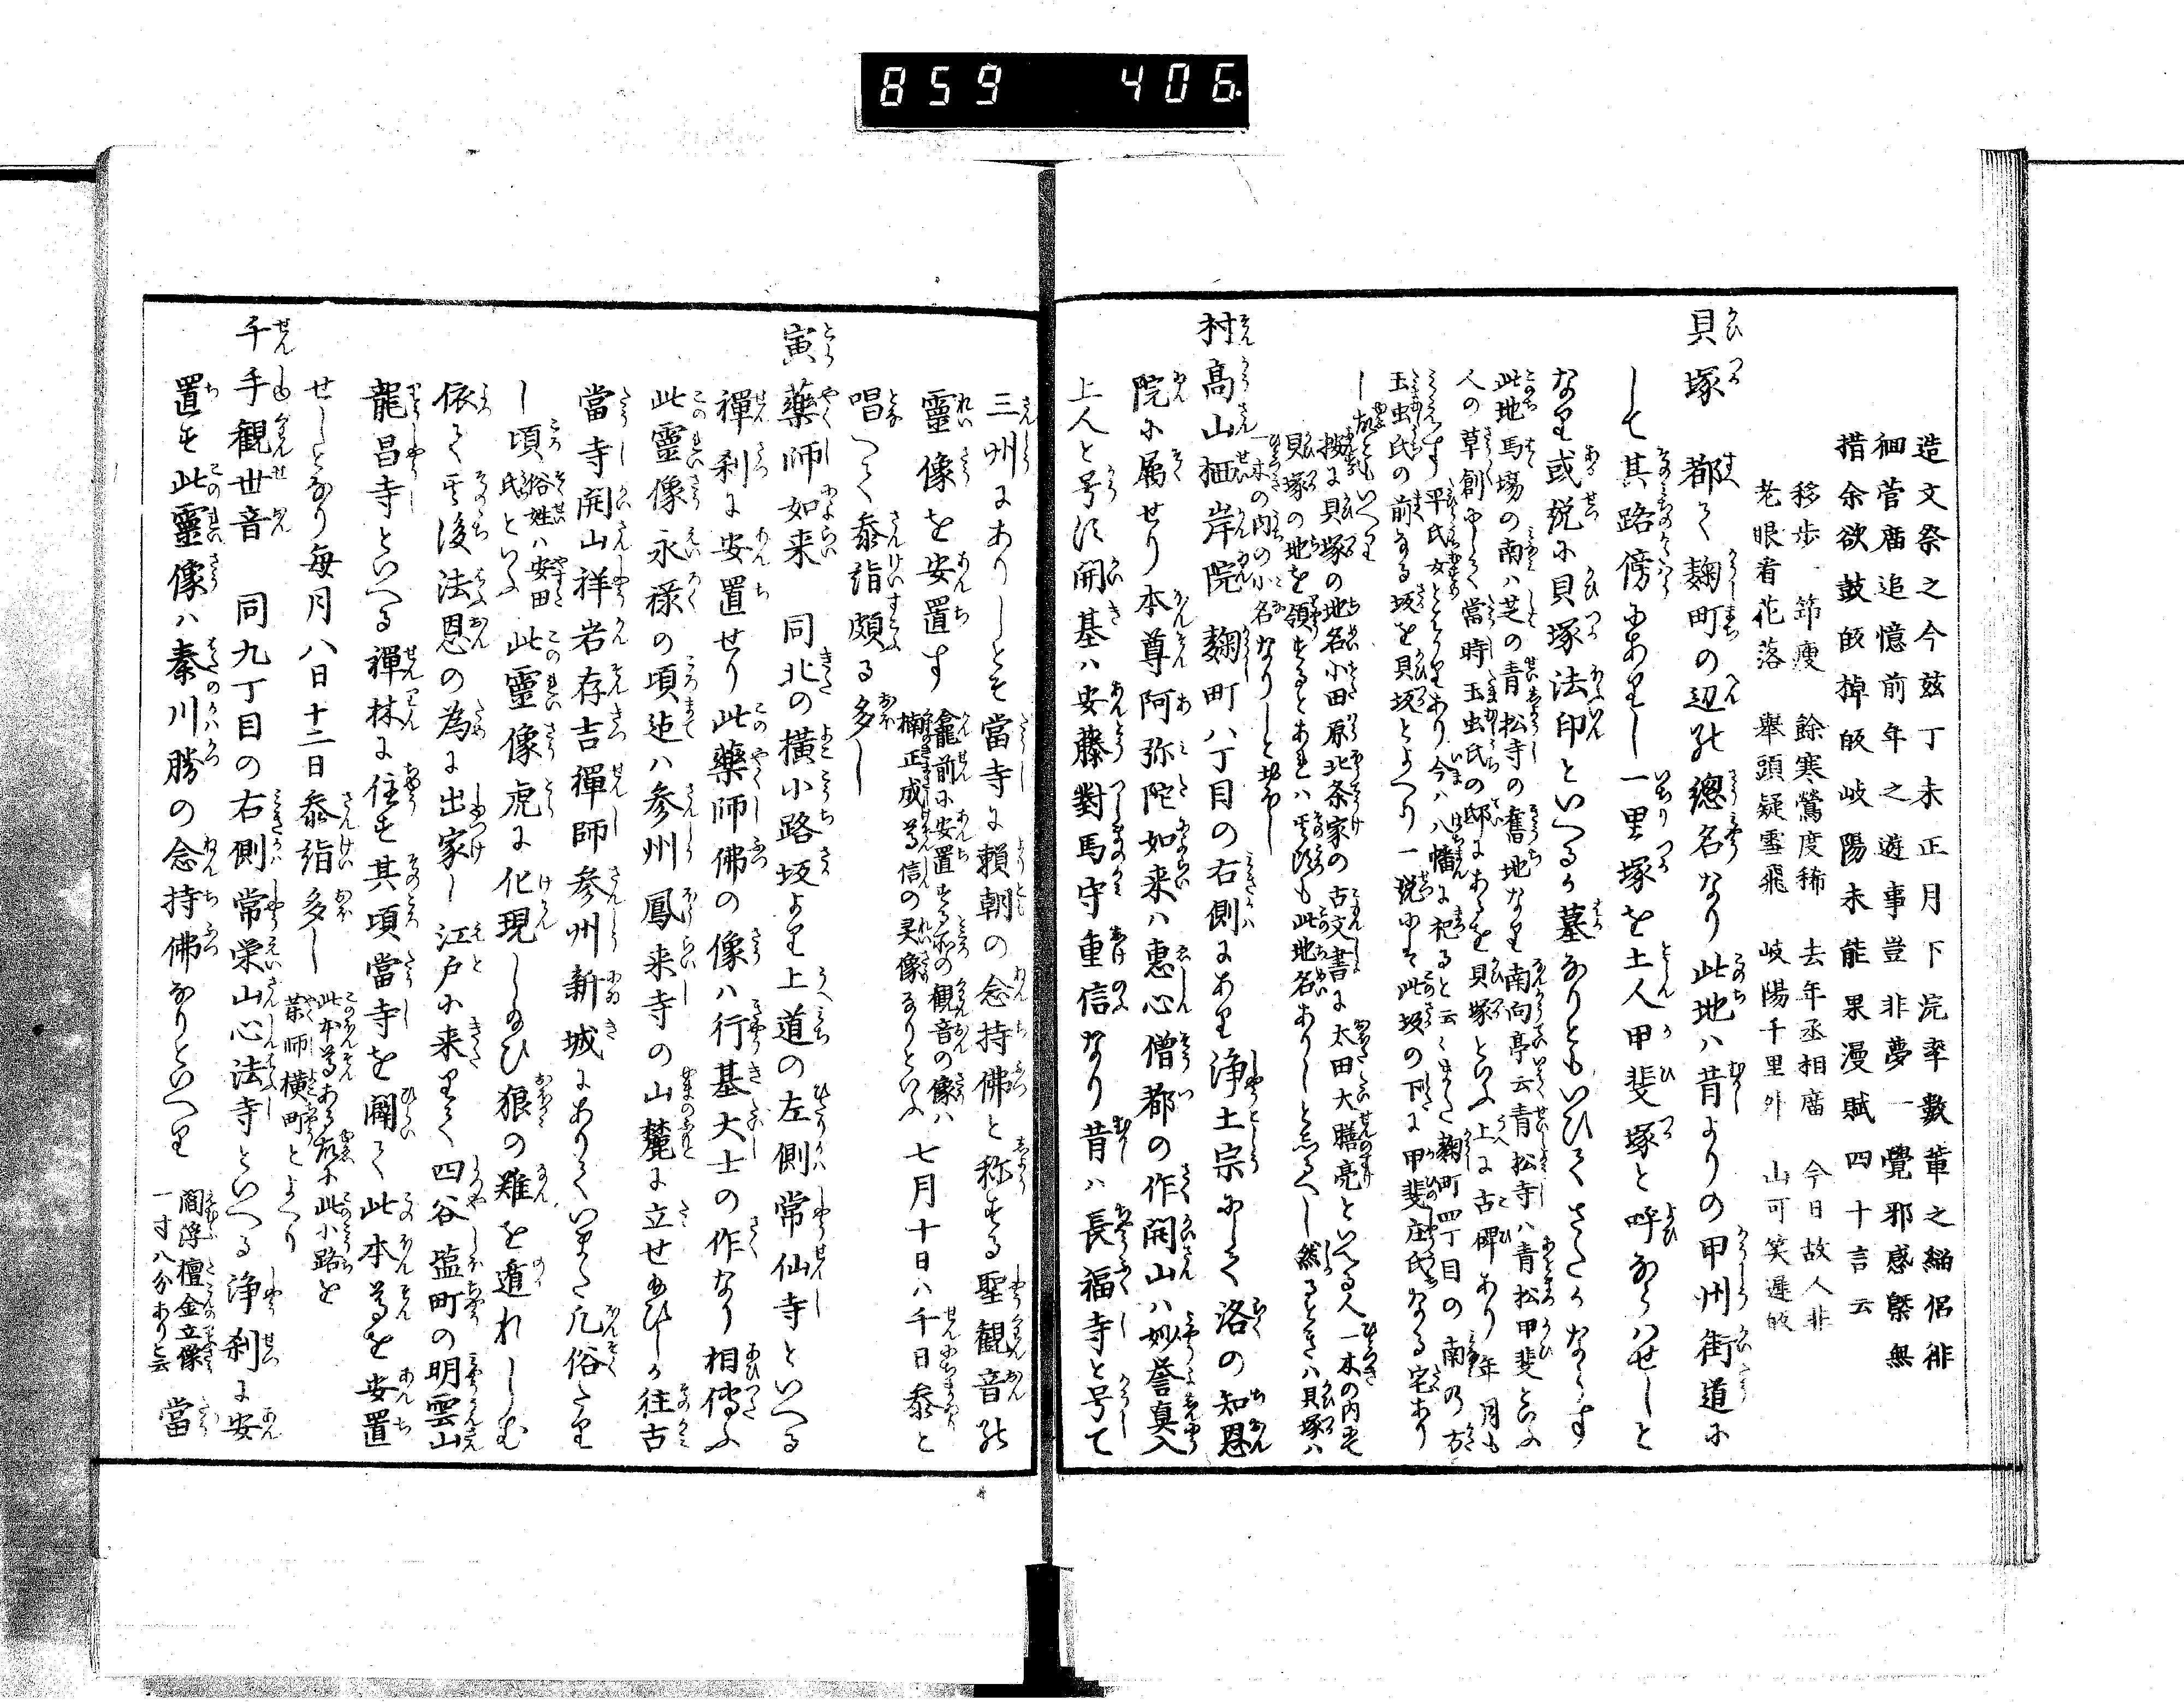 859 406.
造文祭之今茲丁未正月下浣率數輩之緇侶徘
徊菅廟追憶前年之遊事豈非夢一覺邪感慇無
措余欲鼓皷掉皷岐陽未能果漫賦四十言云
移歩筇痩 餘寒鶯度稀 去年丞相廟 今日故人非
老眼看花落 舉頭疑雪飛 岐陽千里外 山可笑遲皈
貝塚 都て麹町の辺の總名なり此地ハ昔よりの甲州街道に
して其路傍にありし一里塚を土人甲斐塚と呼ならハせしと
なり或説に貝塚法印といへるか墓なりともいひてさたかならす
此地馬場の南ハ芝の青松寺の舊地なり南向亭云青松寺ハ青松甲斐といふ
人の草創にして當時玉虫氏の邸にあるを貝塚といふ上に古碑あり年月も
す平氏女とよりあり今ハ八幡に祀ると云くまた麹町四丁目の南の方
玉虫氏の前なる坂を貝坂とよへり一説にハ此坂の下に甲斐庄氏なる宅あり
し故ともいへり
按に貝塚の地名小田原北条家の古文書に太田大膳亮といへる人一木の内
貝塚の地を領するとあれハ其頃も此地名ありしと志るへし然るときハ貝塚ハ
一木の内の小名なりしと知へし
村高山栖岸院 麹町八丁目の右側にあり浄土宗にして洛の知恩
院に属せり本尊阿弥陀如来ハ惠心僧都の作開山ハ妙誉真入
上人と号す開基ハ安藤對馬守重信なり昔ハ長福寺と号て
三州にありしとそ當寺に頼朝の念持佛と称する聖観音の
靈像を安置す 龕前に安置する所の観音の像ハ
楠正成尊信の灵像なりといふ 七月十日ハ千日参と
唱へて参詣頗る多し
寅薬師如来 同北の横小路坂より上道の左側常仙寺といへる
禅刹に安置せり此薬師佛の像ハ行基大士の作なり相傳ふ
此靈像永禄の頃迠ハ参州鳳来寺の山麓に立せ給ひしか往古
當寺開山祥岩存吉禅師参州新城にありていまた凡俗たり
し頃 俗姓ハ安田
氏といふ 此靈像虎に化現し給ひ狼の難を遁れしむ
依て其後法恩の為に出家し江戸に来りて四谷塩町の明雲山
龍昌寺といへる禅林に住す其頃當寺を闢て此本尊を安置
せしとなり毎月八日十二日参詣多し 此本尊ある故に此小路を
薬師横町とよへり
千手観世音 同九丁目の右側常栄山心法寺といへる浄刹に安
置す此靈像ハ秦川勝の念持佛なりといへり 閻浮檀金立像
一寸八分ありと云 當